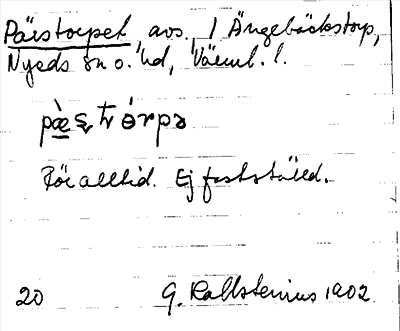 Pärstorpet, avs. / Ängebäckstorp,
Nyeds sn o. hd, Värml. l.
pæ̀ʂtórpə
För alltid. Ej fastställd.
20 G. Kallstenius 1902